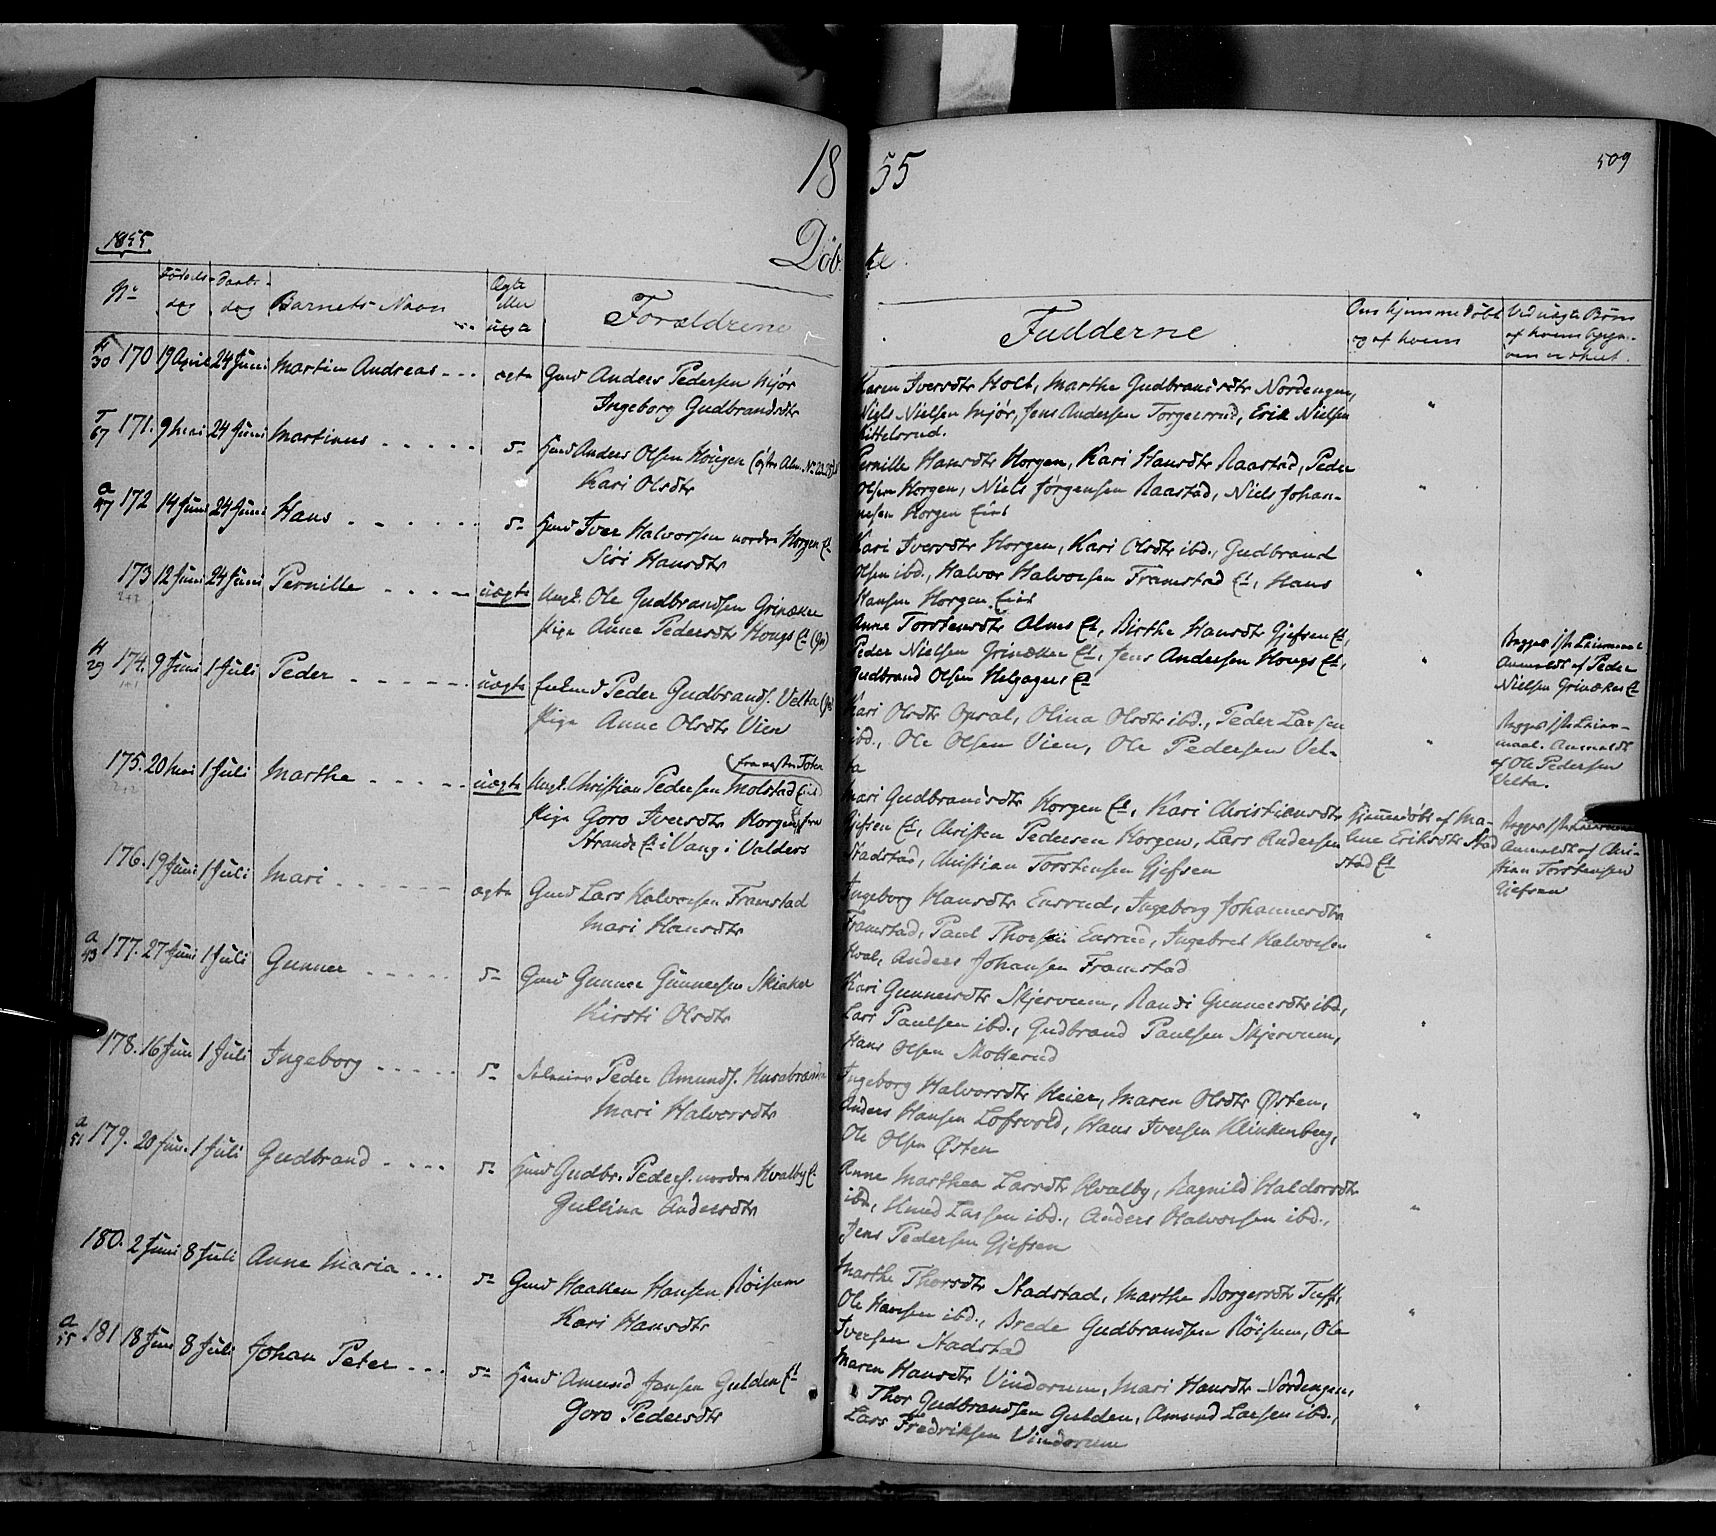 18 55
509
1855
Döb te
No
Fødsels-dag
Daabs-dag
Barnets Navn
Ægte eller uægte
Forældrene
Fadderne
Om hjemmedöbt og af hvem
Ved uægte Børn af hvem
30 170 19 April 24 Juni Martin Andreas - - - ægte Gmd Anders Pedersen Mjør
Ingeborg Gudbrandsdtr
Karen Iversdtr Holt, Marthe Gudbrandsdtr Nordengen,
Niels Nielsen Mjør, Jens Andersen Torgersrud, Erik Nielsen
Kittelsrud.
67 171. 9 Mai 24 Juni Martinus - - - - - Hmd Anders Olsen Hougen
Kari Olsdtr
Pernille Hansdtr Horgen, Kari Hansdtr Raastad, Peder
Olsen Horgen, Niels Jørgensen Raastad, Niels Johan-
nesen Horgen Eiet
47 172 14 Juni 24 Juni Hans - - - - - Hmd Iver Halvorsen nordre Horgen Et
Siri Hansdtr
Kari Iversdtr Horgen, Kari Olsdtr ibd., Gudbrand
Olsen ibd., Halvor Halvorsen Framstad Et, Hans
Hansen Horgen Eiet
173 12 Juni 24 Juni Pernille - - - - uægte Ungk. Ole Gudbrandsen Grinaker
Pige Anne Pedersdtr Hougs Et
Anne Torstensdtr Alms Et, Birthe Hansdtr Gjefsen Et,
Peder Nielsen Grinaker Et, Jens Andersen Hougs Et,
Gudbrand Olsen Helgagers Et
Begges 1ste Leiermaal
Anmeldt af Peder
Nielsen Grinaker Et
29 174. 9 Juni 1 Juli Peder - - - - - - uægte Enkemd Peder Gudbrands. Velta
Pige Anne Olsdtr Vien
Kari Olsdtr Opsal, Olina Olsdtr ibd., Peder Larsen
ibd., Ole Olsen Vien, Ole Pedersen Vel-
ta
Begges 1ste Leier-
maal. Anmeldt
af Ole Pedersen
Velta.
175. 20 Mai 1 Juli Marthe - - - - - uægte Ungk. Christian Pedersen Molstad
Pige Goro Iversdtr Horgen fra
Strande Et i Vang i Valders
Mari Gudbrandsdtr Horgen Et, Kari Christiansdtr
Gjefsen Et, Christen Pedersen Horgen, Lars Andersen
Stadstad, Christian Torstensen Gjefsen
Hjemmedöbt af Ma-
lene Eriksdtr Stad
stad Et
Begges 1ste Leiermaal
Anmeldt af Chri-
stian Torstensen
Gjefsen
176. 19 Juni 1 Juli Mari - - - - - - ægte Gmd Lars Halvorsen Framstad
Mari Hansdtr
Ingeborg Hansdtr Ensrud, Ingeborg Johannesdtr
Framstad, Paul Thorsen Ensrud, Ingebret Halvorsen
Hval, Anders Johansen Framstad
43 177. 27 Juni 1 Juli Gunner - - - - - Gmd Gunner Gunnersen Skiaker
Kirsti Olsdtr
Kari Gunnersdtr Skjervum, Randi Gunnersdtr ibd,
Lars Paulsen ibd., Gudbrand Paulsen Skjervum,
Hans Olsen Molterud
178. 16 Juni 1 Juli Ingeborg - - - - - Peder Amunds. Husebrænden
Mari Halvorsdtr
Ingeborg Halvorsdtr Heier, Maren Olsdtr Østen,
Anders Hansen Lofsvold, Hans Iversen Klinkenberg,
Ole Olsen Østen
51 179. 20 Juni 1 Juli Gudbrand - - - - Hmd Gudbr. Peders. nordre Kvalby Et
Gullina Andersdtr
Anne Marthea Larsdtr Kvalby, Ragnild Haldorsdtr
ibd., Knud Larsen ibd., Anders Halvorsen ibd.,
Jens Pedersen Gjefsen
180. 2 Juni 8 Juli Anne Maria - - - Gmd Haaken Hansen Röisum
Kari Hansdtr
Marthe Thorsdtr Stadstad, Marthe Borgersdtr Tufft
Ole Hansen ibd., Brede Gudbrandsen Röisum, Ole
Iversen Stadstad
55 181 18 Juni 8 Juli Johan Peter - - - Hmd Amund Jansen Gulden Et
Goro Pedersdtr
Maren Hansdtr Vindorum, Mari Hansdtr Nordengen,
Thor Gudbrandsen Gulden, Amund Larsen ibd.,
Lars Fredriksen Vindorum